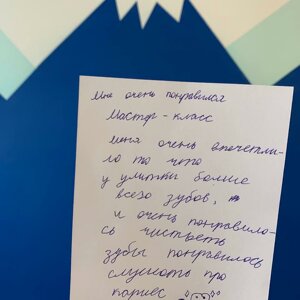 Мне очень понравился
Мастер-класс
меня очень впечетли-
ло то что
у улитки больше
всего зубов,
и очень понравило-
сь чистьеть
зубы понравилось
слушоть про
кариес